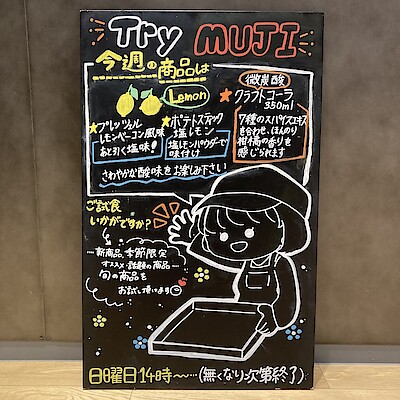 Try MUJI
今週の商品は
Lemon
★プレッツェル
レモンベーコン風味
あと引く塩味!
★ポテトスティック
塩レモン
塩レモンパウダーで
味付け
微炭酸
★クラフトコーラ
350ml
7種のスパイスエキス
を合わせ、ほんのり
柑橘の香りを
感じられます
さわやかな酸味をお楽しみ下さい
ご試食
いかがですか?
新商品、季節限定
オススメ・話題の商品…
旬の商品を
お試し頂けます
日曜日14時〜…(無くなり次第終了)